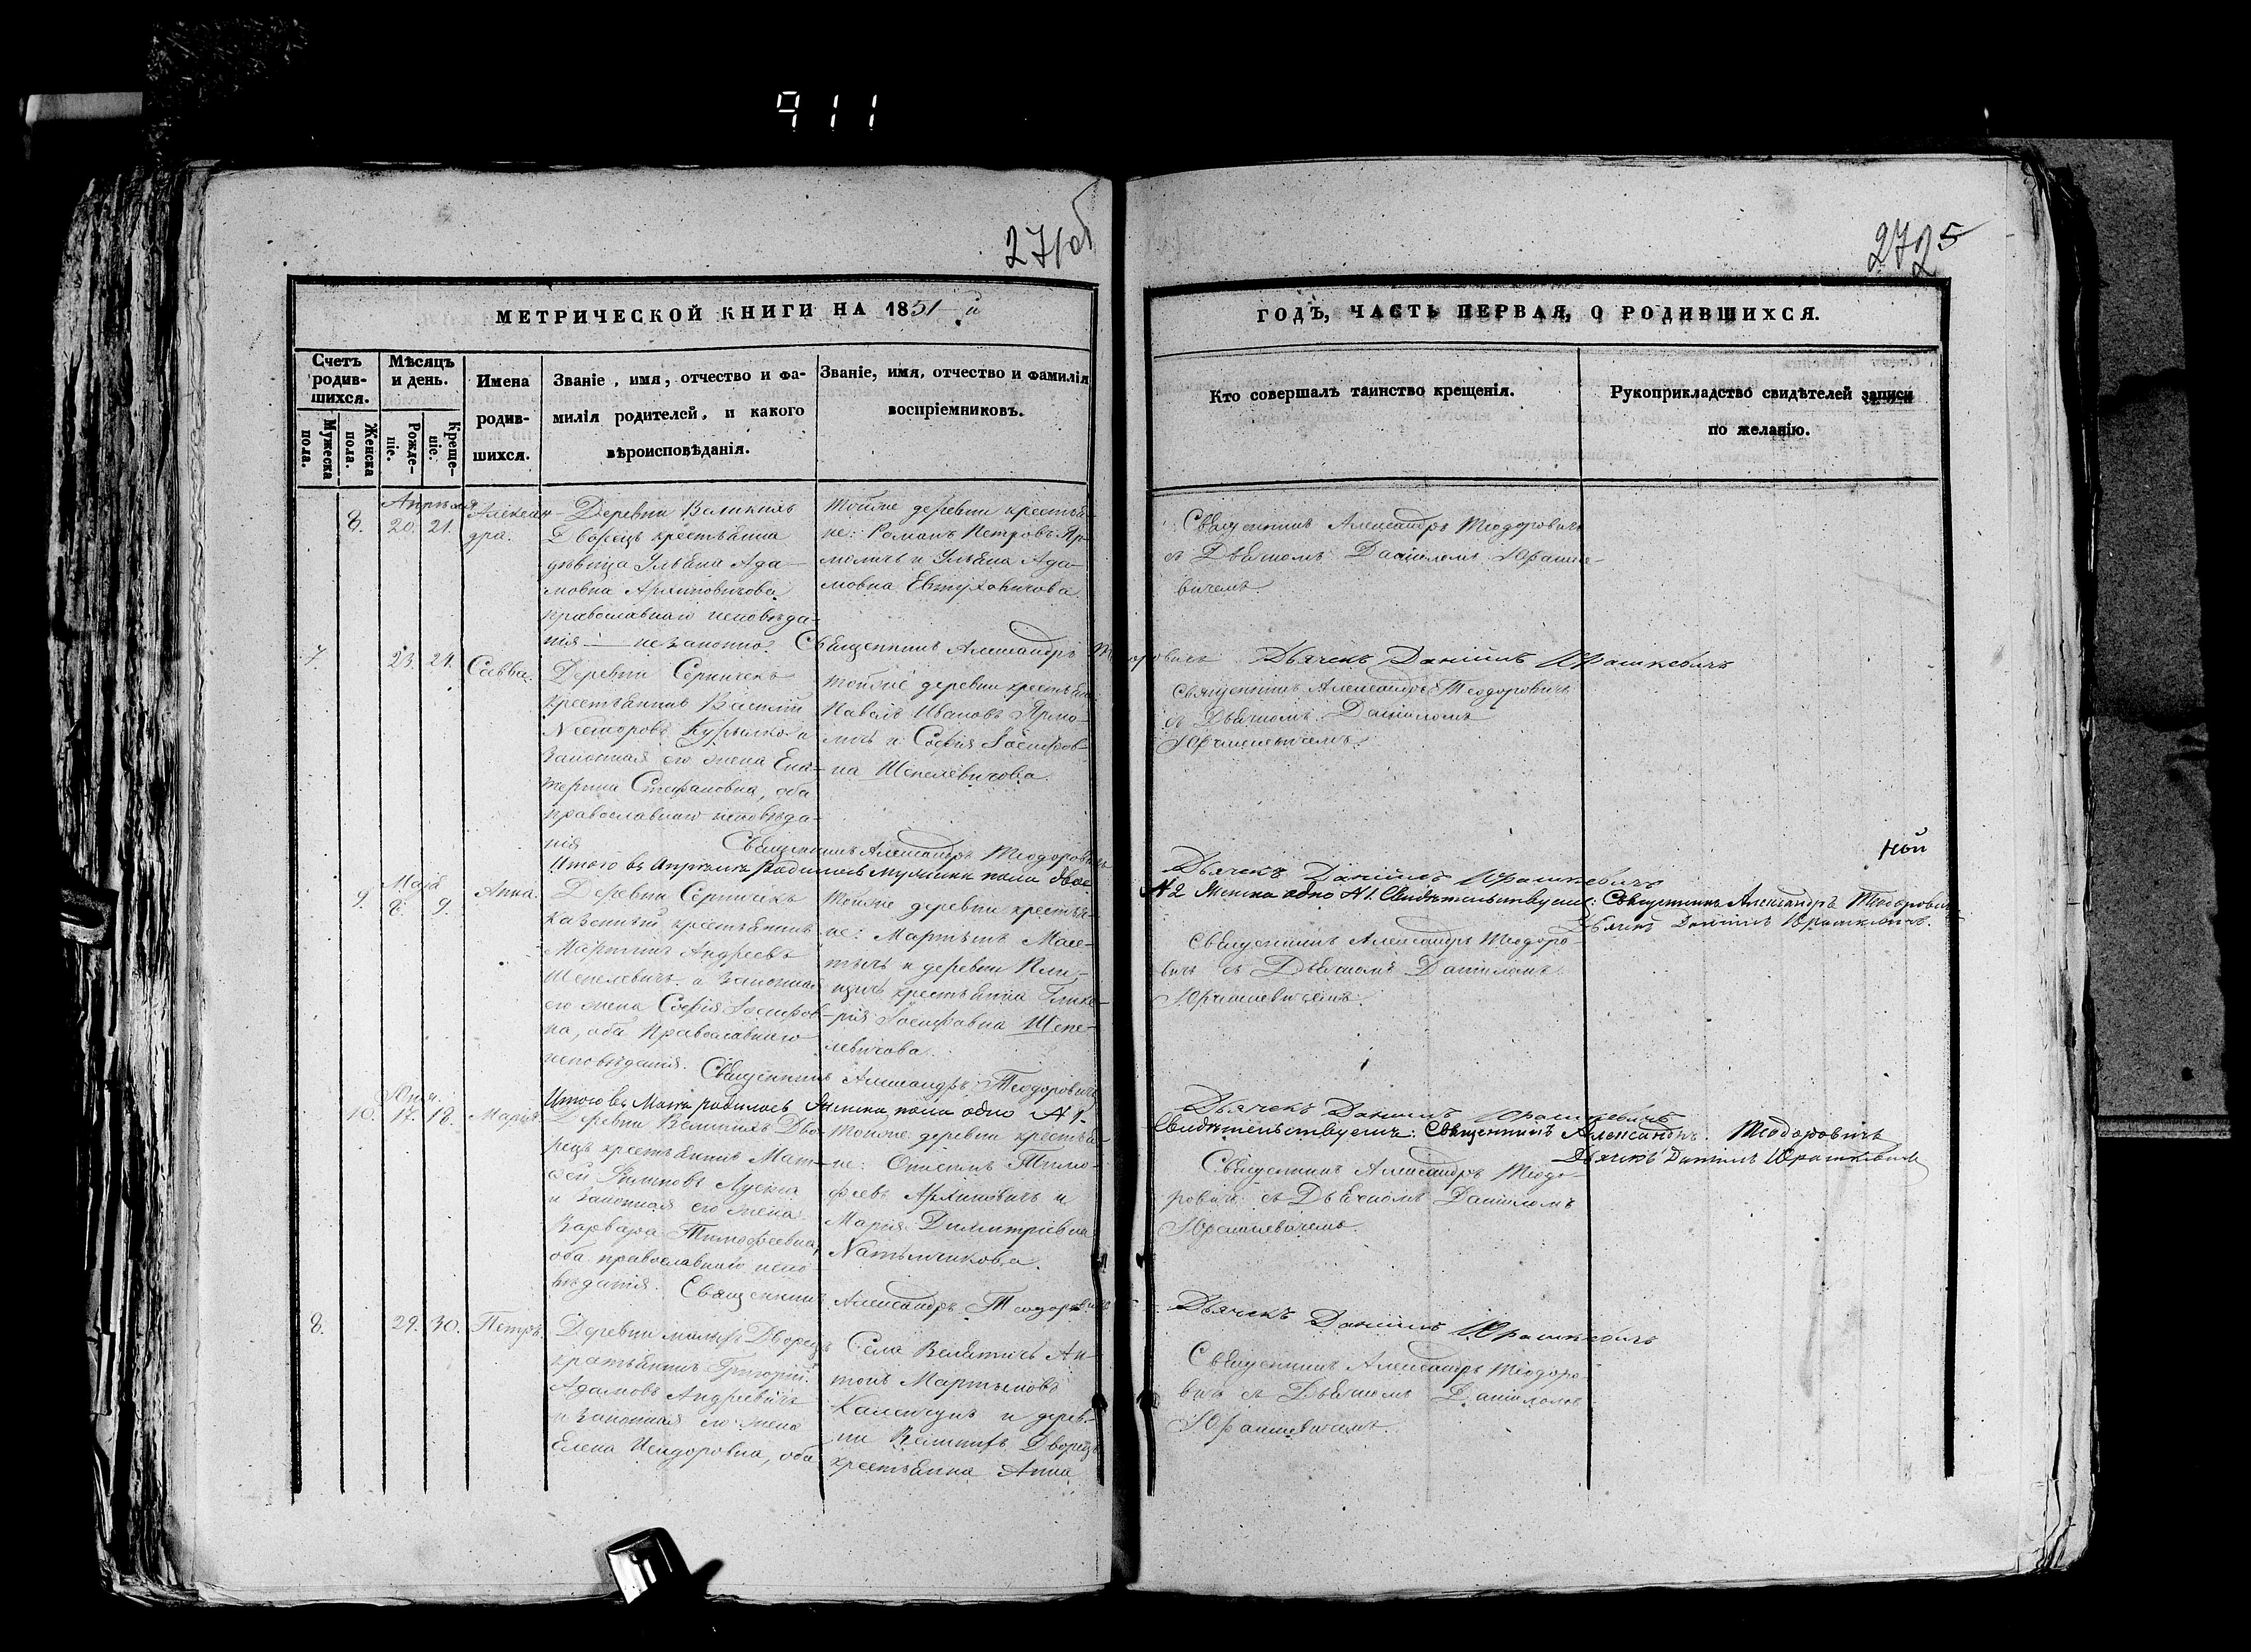 911
271об
272
5
МЕТРИЧЕСКОЙ КНИГИ НА 1851-й
ГОДЪ, ЧАСТЬ ПЕРВАЯ, О РОДИВШИХСЯ.
Счетъ родив-шихся.
Мужеска пола.
Женска пола.
Мѣсяцъ и день.
Рожде-ніе.
Креще-ніе.
Имена
родив-
шихся.
Званіе, имя, отчество и фа-
милія родителей, и какого
вѣроисповѣданія.
Званіе, имя, отчество и фамилія
воспріемниковъ.
Кто совершалъ таинство крещенія.
Рукоприкладство свидѣтелей записи
по желанію.
Апрѣля
8. 20. 21. Александра.
Деревни Великихъ
Дворецъ крестьянка
дѣвица Ульяна Ада-
мовна Архиповичова
православнаго исповѣда-
нія — незаконно.
Тойже деревни крестья-
не: Романъ Петровъ Яр-
моличъ и Ульяна Ада-
мовна Евтуховичова
Священникъ Александръ Теодоровичъ
съ Дьячкомъ Даніиломъ Юрашке-
вичемъ.
Священникъ Александръ Теодоровичъ Дьячекъ Даніилъ Юрашкевичъ
7. 23. 24. Савва.
Деревни Серничекъ
крестьянинъ Василій
Несторовъ Курылко и
законная его жена Ека-
терина Стефановна, оба
православнаго исповѣда-
нія
Тойже деревни крестьяне
Павелъ Ивановъ Ярмо-
личъ и Софія Іосифов-
на Шепелевичова.
Священникъ Александръ Теодоровичъ
съ Дьячкомъ Даніиломъ
Юрашкевичемъ.
Священникъ Александръ Теодоровичъ Дьячекъ Даніилъ Юрашкевичъ
ной
Итого въ Апрѣлѣ родилось мужска пола двое
№ 2 Женска одно № 1. Свидѣтельствуемъ: Священникъ Александръ Теодоровичъ
Дьячекъ Даніилъ Юрашкевичъ.
Маія
9. 8. 9. Анна.
Деревни Серничекъ
казенный крестьянинъ
Мартинъ Андреевъ
Шепелевичъ и законная
его жена Софія Іосифов-
на, оба Православнаго
исповѣданія.
Тойже деревни крестья-
не:
и деревни
крестьянка Глике-
рія Іосифовна Шепе-
левичова.
Священникъ Александръ Теодоро-
вичъ съ Дьячкомъ Даніиломъ
Юрашкевичемъ.
Священникъ Александръ Теодоровичъ Дьячекъ Даніилъ Юрашкевичъ
Итого въ Маіѣ родилось Женска пола одно № 1.
Свидѣтельствуемъ: Священникъ Александръ Теодоровичъ
Дьячекъ Даніилъ Юрашкевичъ
10. 17. 18. Марія.
Деревни Великихъ Дво-
рецъ крестьянинъ Мат-
фей
и законная его жена
Варвара Тимофеевна,
оба православнаго испо-
вѣданія.
Тойже деревни крестья-
не: Онисимъ Тимо-
феевъ Архиповичъ и
Марія Димитріевна
Священникъ Александръ Теодо-
ровичъ съ Дьячкомъ Даніиломъ
Юрашкевичемъ.
Священникъ Александръ Теодоровичъ Дьячекъ Даніилъ Юрашкевичъ
8. 29. 30. Петръ.
Деревни малыхъ Дворецъ
крестьянинъ Григорій
Адамовъ Андреевичъ
и законная его жена
Елена Исидоровна, оба
Села Велятичъ Ан-
тонъ Мартыновъ
и дерев-
ни Великихъ Дворецъ
крестьянка Анна
Священникъ Александръ Теодоро-
вичъ съ Дьячкомъ Даніиломъ
Юрашкевичемъ.